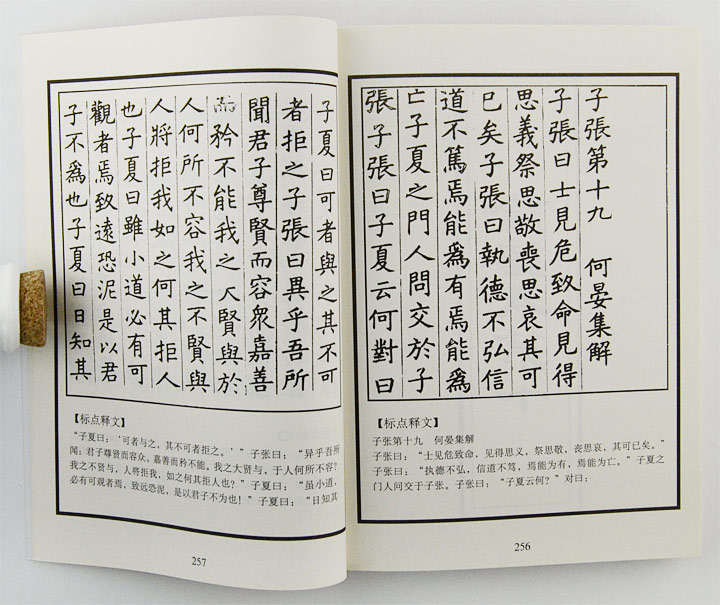 子張第十九 何晏集解
子張曰士見危致命見得
思義祭思敬喪思哀其可
已矣子張曰執德不弘信
道不篤焉能爲有焉能爲
亡子夏之門人問交於子
張子張曰子夏云何對曰
【标点释文】
子张第十九 何晏集解
子张曰：“士见危致命，见得思义，祭思敬，丧思哀，其可已矣。”
子张曰：“执德不弘，信道不笃，焉能为有，焉能为亡。”子夏之
门人问交于子张。子张曰：“子夏云何？”对曰：
256
子夏曰可者與之其不可
者拒之子張曰異乎吾所
聞君子尊賢而容衆嘉善
而矜不能我之大賢與於
人何所不容我之不賢與
人將拒我如之何其拒人
也子夏曰雖小道必有可
觀者焉致遠恐泥是以君
子不爲也子夏曰日知其
【标点释文】
“子夏曰：‘可者与之，其不可者拒之。’”子张曰：“异乎吾所
闻：君子尊贤而容众，嘉善而矜不能。我之大贤与，于人何所不容？
我之不贤与，人将拒我，如之何其拒人也？”子夏曰：“虽小道，
必有可观者焉，致远恐泥，是以君子不为也！”子夏曰：“日知其
257